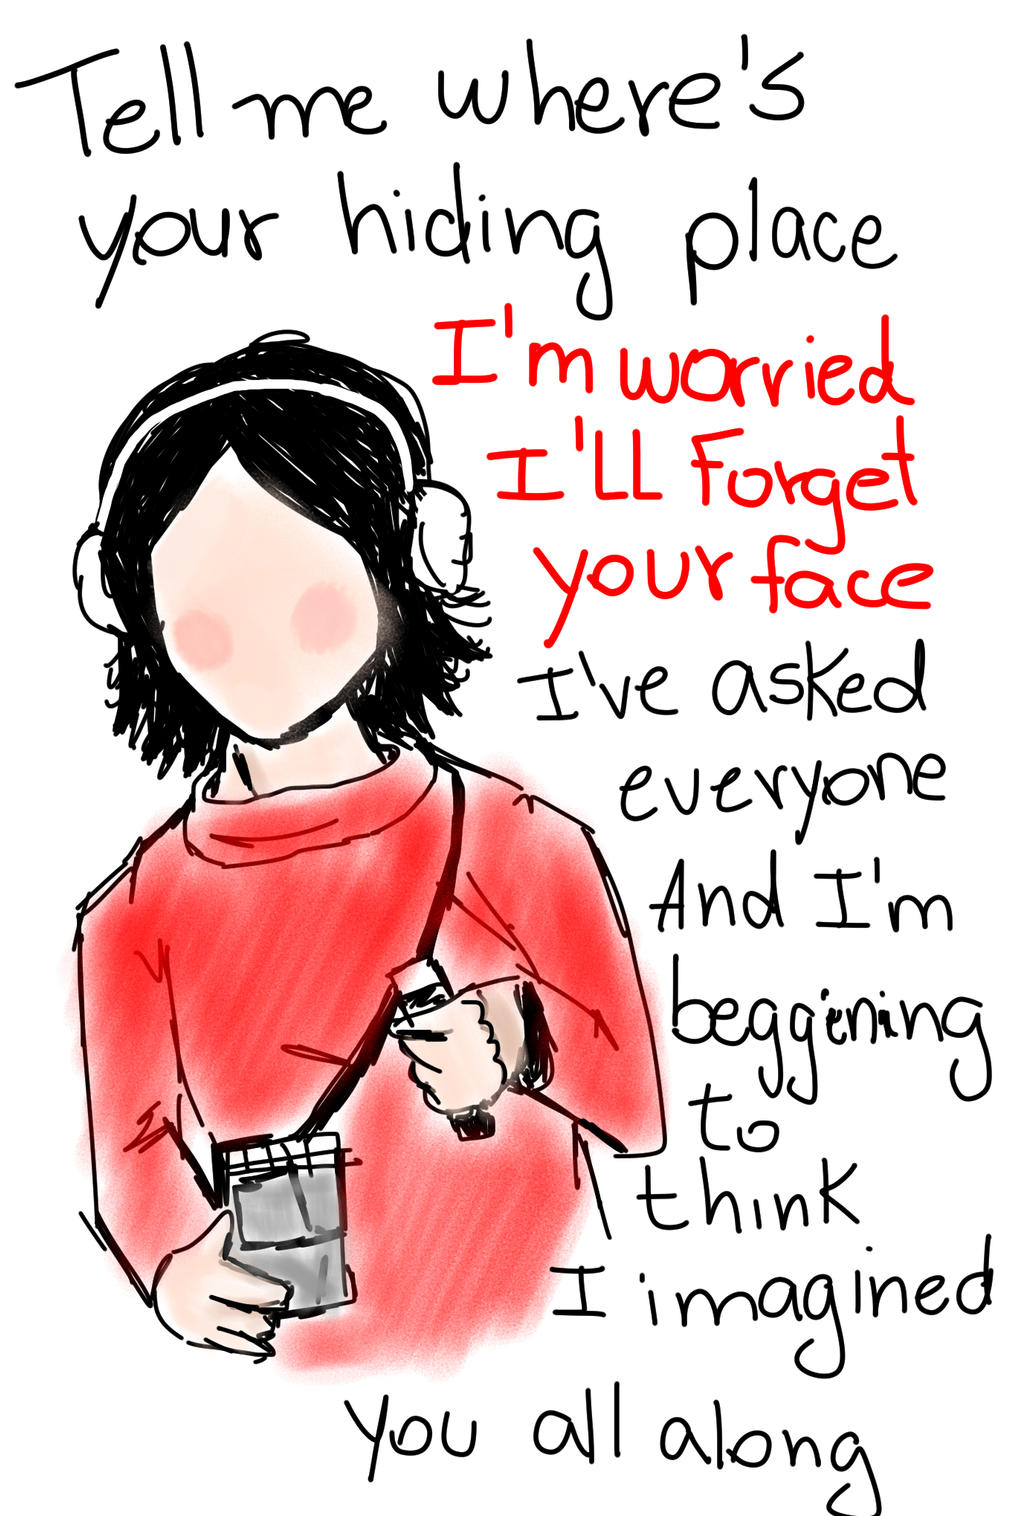 Tell me where's
your hiding place
I'm worried
I'LL Forget
your face
I've asked
everyone
And I'm
beggening
to
think
I imagined
you all along